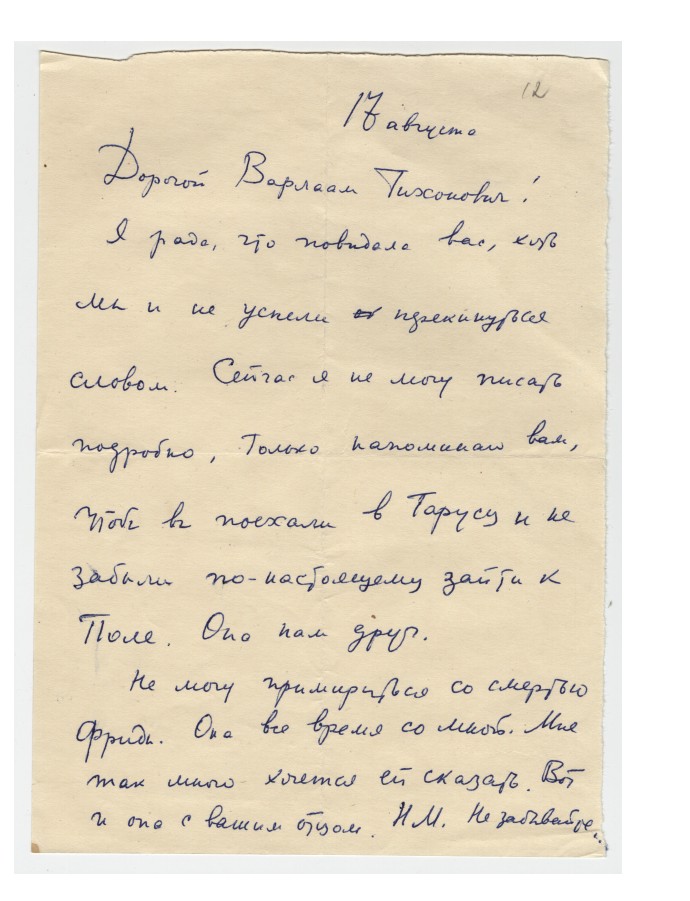 12
17 августа
Дорогой Варлаам Тихонович!
Я рада, что повидала вас, хоть
мы и не успели перекинуться
словом. Сейчас я не могу писать
подробно, только напоминаю вам,
чтобы вы поехали в Тарусу и не
забыли по-настоящему зайти к
Поле. Она нам друг.
Не могу примириться со смертью
Фриды. Она все время со мной. Мне
так много хочется ей сказать. Вот
и она с вашим отцом. Н.М. Не забывайте